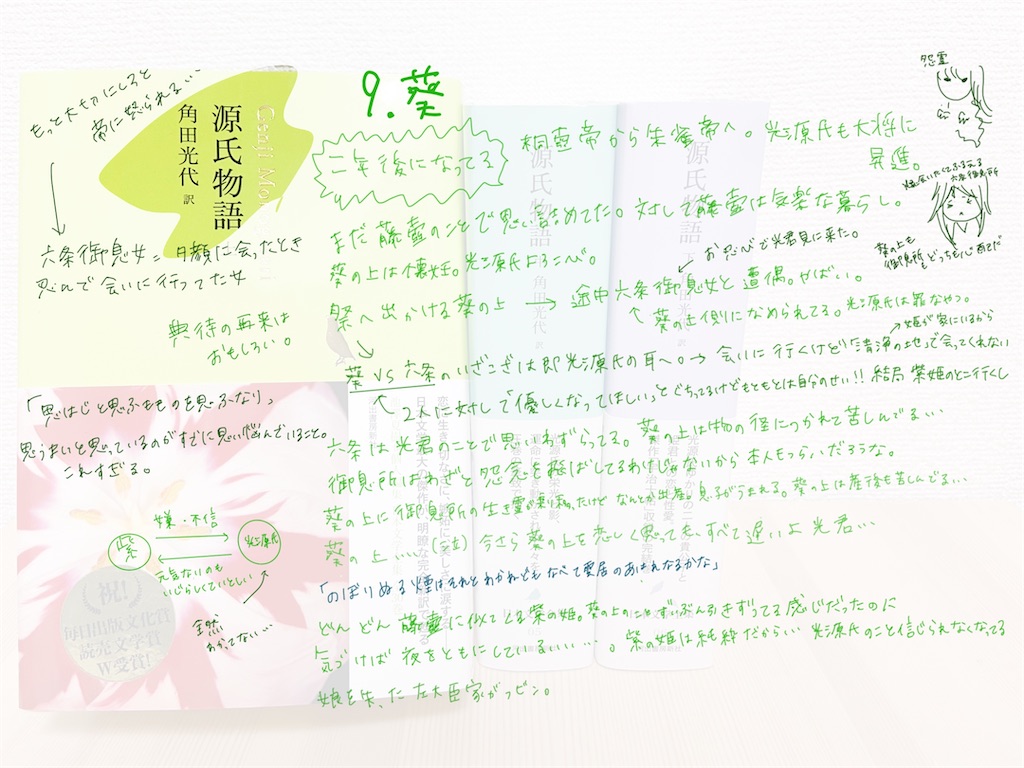 9. 葵
二年後になってる
桐壺帝から朱雀帝へ。光源氏も大将に
昇進。
まだ藤壺のことで思い詰めてた。対して藤壺は気楽な暮らし。
葵の上は懐妊。光源氏よろこべ。
お忍びで光君見に来た。
祭へ出かける葵の上 → 途中六条御息女と遭遇。やばい。
葵の上側になめられてる。光源氏は罪なやつ。
葵 VS 六条のいざこざは即光源氏の耳へ。→ 会いに行くけど「清浄の地」で会ってくれない
→姫が家にいるから
2人に対して「優しくなってほしい」とぐちってるけどもともとは自分のせい!! 結局 紫姫のとこ行くし
六条は光君のことで思いわずらってる。葵の上は物の怪につかれて苦しんでる…
御息所はわざと怨念を飛ばしてるわけじゃないから本人もつらいだろうな。
葵の上に御息所の生き霊が乗り移ったけどなんとか出産。息子がうまれる。葵の上は産後も苦しんでる…
葵の上……(泣) 今さら葵の上を恋しく思っても、すべて遅いよ光君…
「のぼりぬる煙はそれとわかねどもなべて雲居のあはれなるかな」
どんどん藤壺に似てくる紫の姫。葵の上のことずいぶん引きずってる感じだったのに
気づけば夜をともにしているぃぃ…。紫の姫は純粋だから… 光源氏のこと信じられなくなってる
娘を失った左大臣家がつピン。
もっと大切にしろと
帝に怒られる…
六条御息女=夕顔に会ったとき
忍んで会いに行ってた女
興待の再来は
おもしろい。
「思はじと思ふも ものを思ふなり」
思うまいと思っているのがすでに思い悩んでいること。
これすぎる。
紫
嫌・不信
光源氏
元気ないのも
いじらしくていとしい
全然
わかってない…
怨霊
葵の上も
御息所もどっちも心配だ
源氏物語
角田光代 訳
祝!
毎日出版文化賞
読売文学賞
W受賞!
源氏物語
角田光代
源氏物語